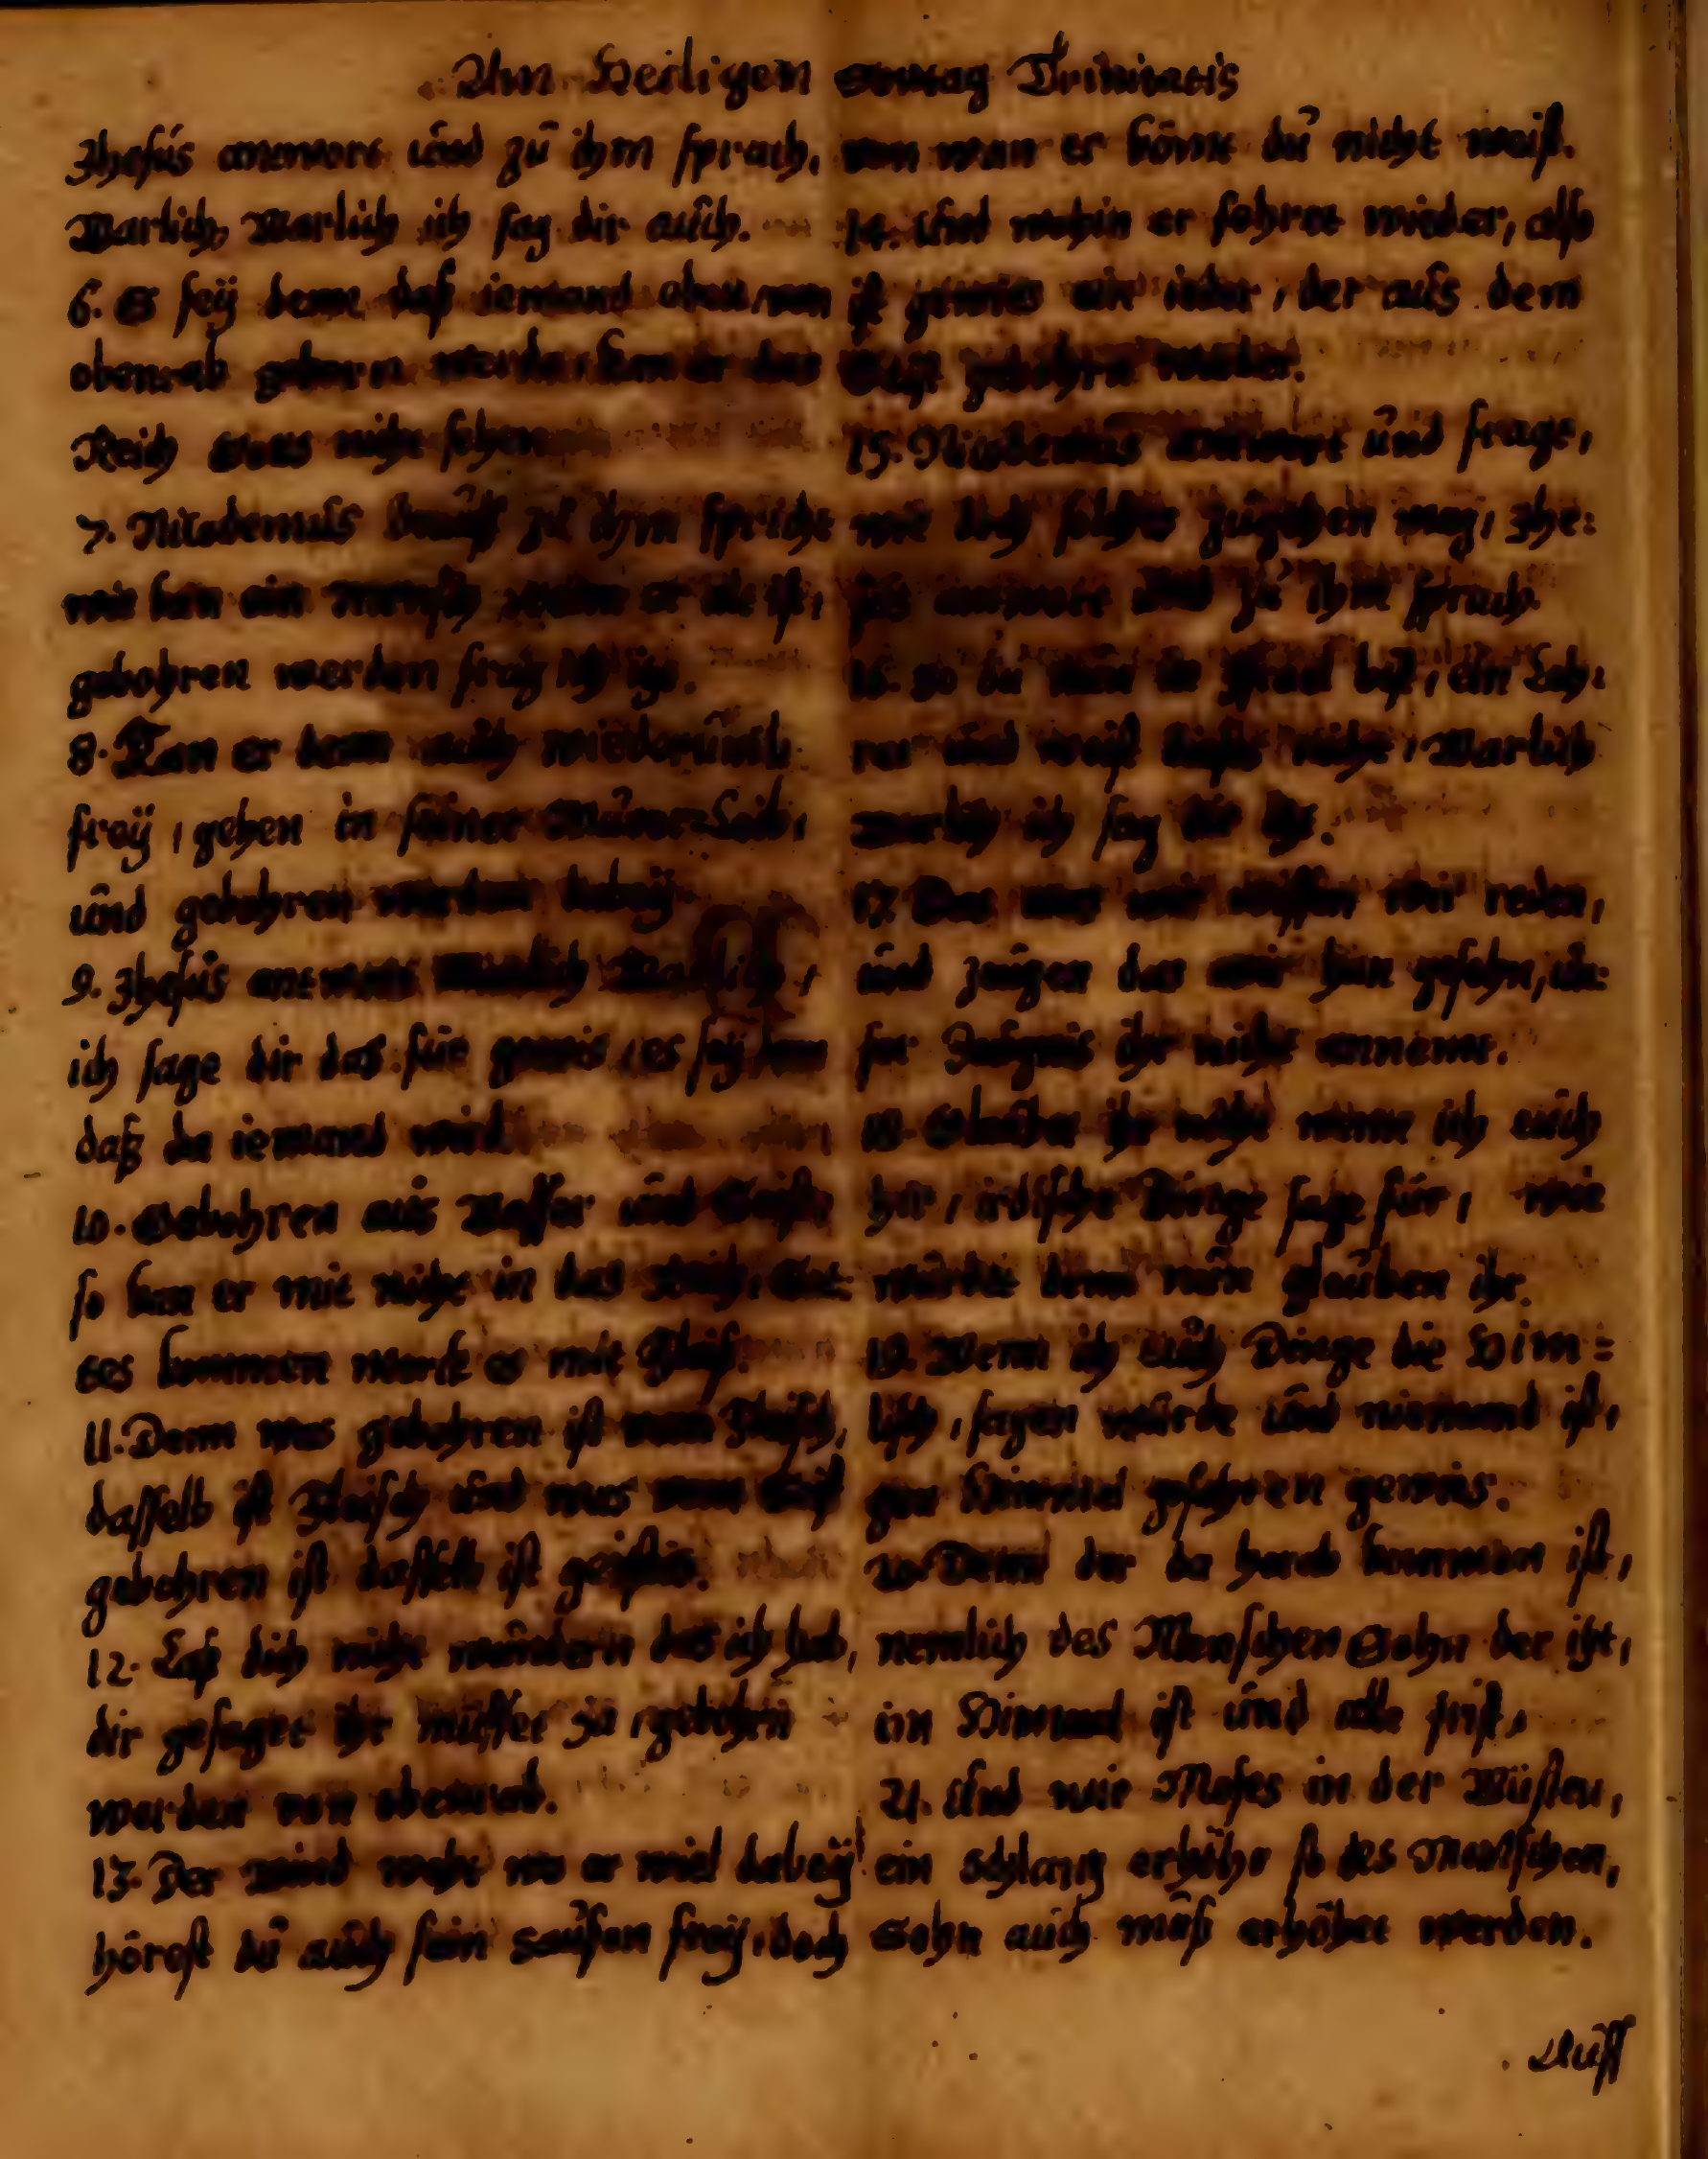 Am Heiligen Sontag Trinitatis
Jhesus antwort und zu ihm sprach,
Warlich, Warlich ich sag dir auch.
6. Es seÿ denn daß iemand oben, von
obenrab geborn werde, kan er das
Reich Gottes nicht sehen
7. Nicodemus drauff zu ihm spricht
wie kan ein Mensch wenn er alt ist,
gebohren werden frag ich izt.
8. Kan er denn auch wiederumb
freÿ, gehen in seiner Mutter Leib,
und gebohren werden dabeÿ
9. Jhesus antwort Warlich Warlich,
ich sage dir das für gewis, es seÿ denn
daß da iemand wird
10. Gebohren aus Wasser und Geist,
so kan er mit nicht in das Reich, Got-
tes kommen merck es mit Fleiß.
11. Denn was gebohren ist vom Fleisch,
dasselb ist Fleisch und was vom Geist
gebohren ist dasselb ist geistlis.
12. Laß dich nicht wundern das ich hab,
dir gesaget ihr müsset ja, gebohrn
werden von obenrab.
13. Der Wind weht wo er wiel dabeÿ
hörest du auch sein sausen freÿ, doch
von wan er kömt du nicht weist.
14. Und wohin er fehret wieder, also
ist gewies ein ieder, der aus dem
Geist gebohrn wieder.
15. Nicodemus antwort und fragt,
wie doch solches zugehen mag, Jhe:
sus antwort und zu ihm sprach.
16. So du nun in Israel bist, ein Leh:
rer und weist dieses nicht, Warlich
Warlich ich sag dir izt.
17. Das was wir wissen wir reden,
und zeugen das wir han gesehn, un-
ser Zeugnis ihr nicht annemt.
18. Glaubet ihr nicht wenn ich euch
hir, irdische Dinge sage für, wie
würdet denn nun glauben ihr.
19. Wenn ich euch Dinge die Him=
lisch, sagen würde und niemand ist,
gen Himmel gefahren gewis.
20. Denn der da herab kommen ist,
nemlich des Menschen Sohn der izt,
im Himmel ist und alle frist,
21. Und wie Moses in der Wüsten,
ein Schlang erhöht so des Menschen,
Sohn auch muß erhöhet werden.
Auff